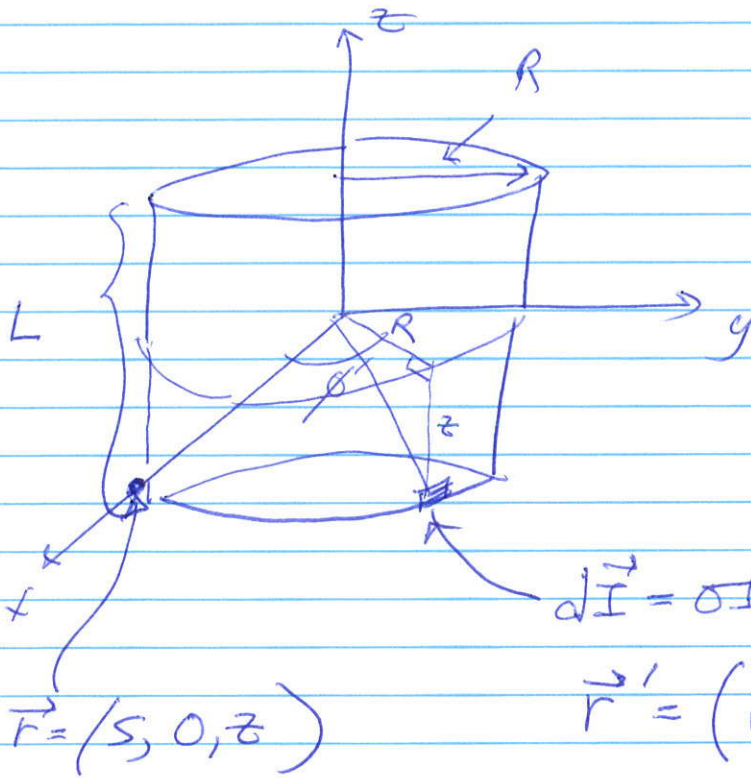 z
R
L
y
R
φ'
z
x
dI⃗ = σI
r⃗ = (S, 0, z)
r⃗' = (